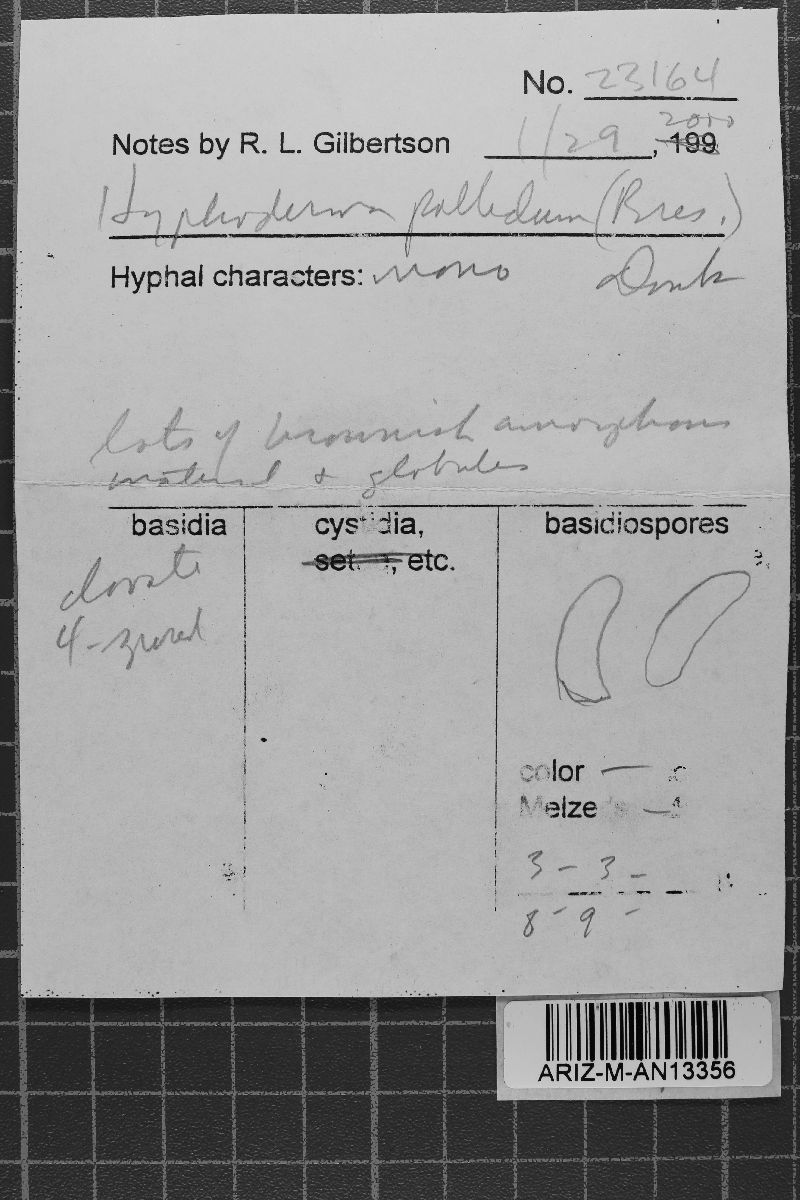 No. 23164
Notes by R. L. Gilbertson 1/29, 199 2000
Hyphoderma pallidum (Bres.)
Hyphal characters: mono Donk
lots of brownish amorphous
material & globules
basidia cystidia, basidiospores
set, etc.
clavate
4-spored
color —
Melze —
3 - 3 -
8 - 9 -
ARIZ-M-AN13356